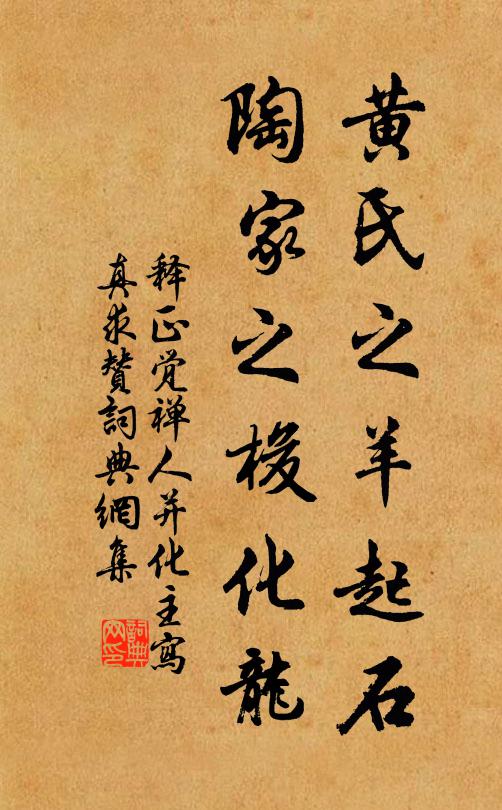 黄氏之羊起石
陶家之梭化龍
释正觉禅人并化主寫
真求贊詞典網集
詞典网印